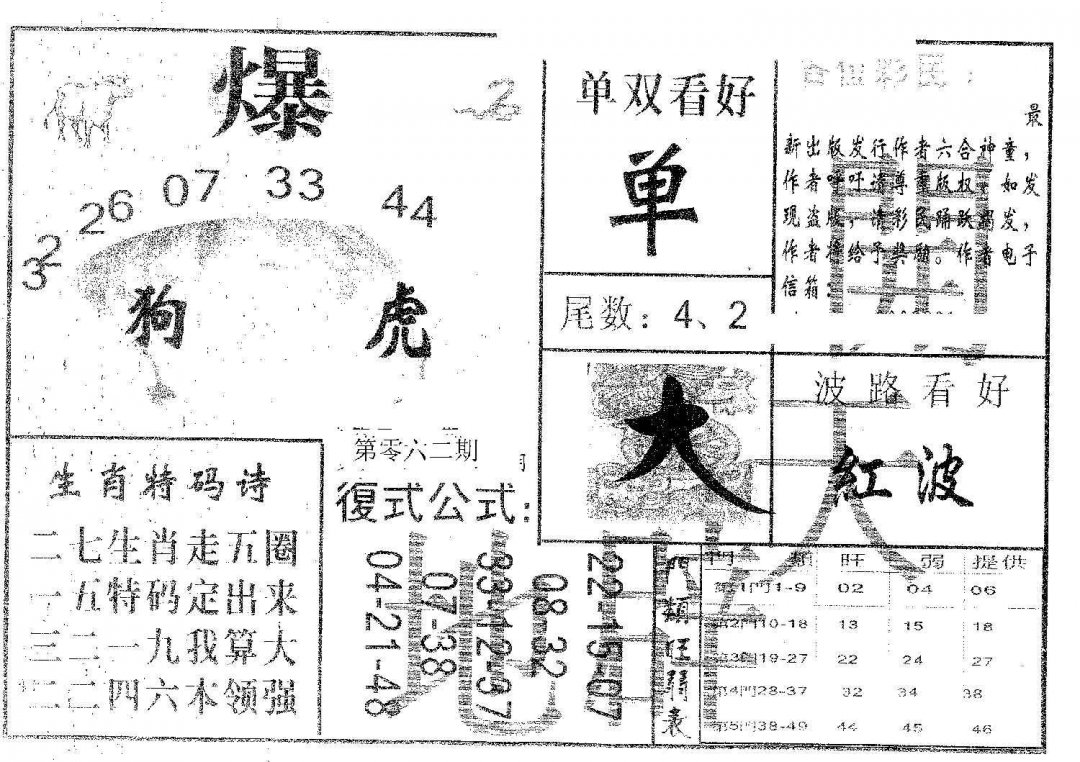 爆
32 26 07 33 44
狗 虎
单双看好
单
尾数：4、2
彩民：
最
新出版发行作者六合神童，
作者呼吁请尊重版权，如发
现盗版，请彩民踊跃揭发，
作者将给予奖励。作者电子
信箱：
大
波路看好
紅波
生肖特码诗
二七生肖走五圈
一五特码定出来
三二一九我算大
二二四六本领强
第零六二期
復式公式：
04-21-48
07-38
33-12-37
08-32
22-15-07
門類旺弱表
門類 旺 弱 提供
第1門1-9 02 04 06
第2門10-18 13 15 18
第3門19-27 22 24 27
第4門28-37 32 34 38
第5門38-49 44 45 46